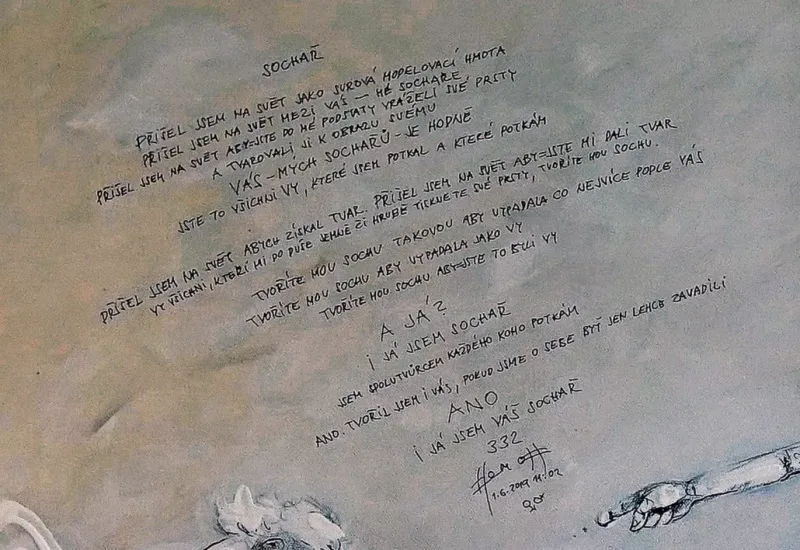 SOCHAŘ
PŘIŠEL JSEM NA SVĚT JAKO SUROVÁ MODELOVACÍ HMOTA
PŘIŠEL JSEM NA SVĚT MEZI VÁS – MÉ SOCHAŘE
PŘIŠEL JSEM NA SVĚT ABY-JSTE DO MÉ PODSTATY VRÁŽELI SVÉ PRSTY
A TVAROVALI JI K OBRAZU SVÉMU
VÁS – MÝCH SOCHAŘŮ – JE HODNĚ
JSTE TO VŠICHNI VY, KTERÉ JSEM POTKAL A KTERÉ POTKÁM
PŘIŠEL JSEM NA SVĚT ABYCH ZÍSKAL TVAR. PŘIŠEL JSEM NA SVĚT ABY-JSTE MI DALI TVAR
VY VŠICHNI, KTEŘÍ MI DO DUŠE JEMNĚ ČI HRUBĚ TISKNETE SVÉ PRSTY, TVOŘÍTE MOU SOCHU.
TVOŘÍTE MOU SOCHU TAKOVOU ABY VYPADALA CO NEJVÍCE PODLE VÁS
TVOŘÍTE MOU SOCHU ABY VYPADALA JAKO VY
TVOŘÍTE MOU SOCHU ABY-JSTE TO BYLI VY
A JÁ?
I JÁ JSEM SOCHAŘ
JSEM SPOLUTVŮRCEM KAŽDÉHO KOHO POTKÁM
ANO. TVOŘIL JSEM I VÁS, POKUD JSME O SEBE BYŤ JEN LEHCE ZAVADILI
ANO
I JÁ JSEM VÁŠ SOCHAŘ
332
1.6.2019 11:02